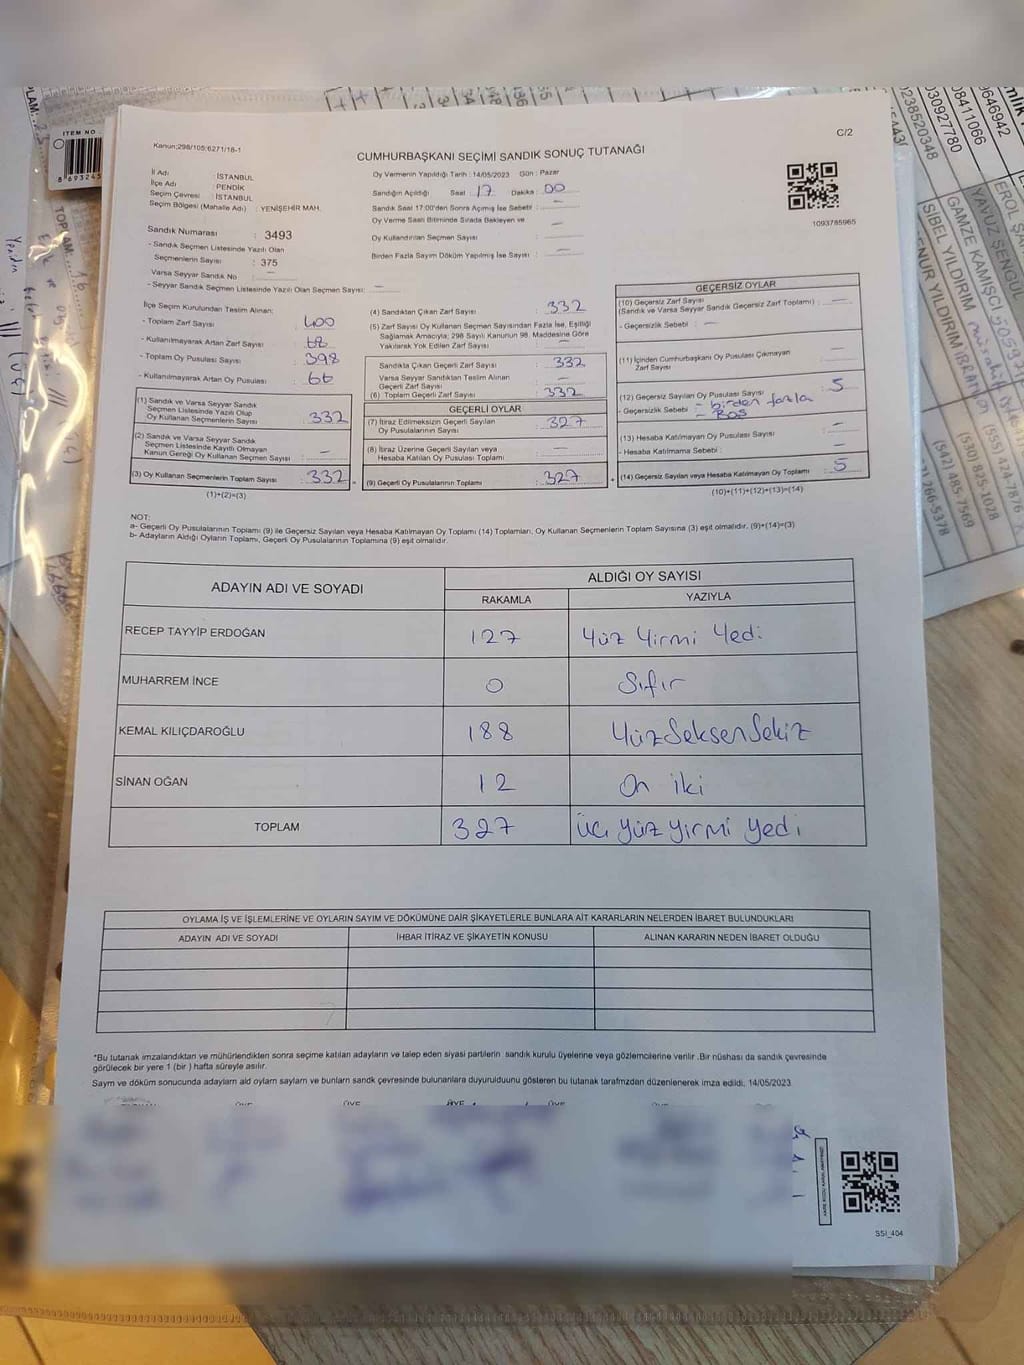 C/2
Kanun;298/105;6271/18-1
CUMHURBAŞKANI SEÇİMİ SANDIK SONUÇ TUTANAĞI
İl Adı : İSTANBUL
İlçe Adı : PENDİK
Seçim Çevresi : İSTANBUL
Seçim Bölgesi (Mahalle Adı) : YENİŞEHİR MAH.
Sandık Numarası : 3493
- Sandık Seçmen Listesinde Yazılı Olan
Seçmenlerin Sayısı : 375
Varsa Seyyar Sandık No : —
- Seyyar Sandık Seçmen Listesinde Yazılı Olan Seçmen Sayısı: —
Oy Vermenin Yapıldığı Tarih : 14/05/2023 Gün : Pazar
Sandığın Açıldığı Saat : 17 Dakika : 00
Sandık Saat 17:00'den Sonra Açılmış İse Sebebi : —
Oy Verme Saati Bitiminde Sırada Bekleyen ve
Oy Kullandırılan Seçmen Sayısı : —
Birden Fazla Sayım Döküm Yapılmış İse Sayısı : —
1093785965
İlçe Seçim Kurulundan Teslim Alınan:
- Toplam Zarf Sayısı : 400
- Kullanılmayarak Artan Zarf Sayısı : 68
- Toplam Oy Pusulası Sayısı : 398
- Kullanılmayarak Artan Oy Pusulası : 66
(1) Sandık ve Varsa Seyyar Sandık
Seçmen Listesinde Yazılı Olup
Oy Kullanan Seçmenlerin Sayısı : 332
(2) Sandık ve Varsa Seyyar Sandık
Seçmen Listesinde Kayıtlı Olmayan
Kanun Gereği Oy Kullanan Seçmen Sayısı : —
(3) Oy Kullanan Seçmenlerin Toplam Sayısı : 332
(1)+(2)=(3)
(4) Sandıktan Çıkan Zarf Sayısı : 332
(5) Zarf Sayısı Oy Kullanan Seçmen Sayısından Fazla İse, Eşitliği
Sağlamak Amacıyla; 298 Sayılı Kanunun 98. Maddesine Göre
Yakılarak Yok Edilen Zarf Sayısı : —
Sandıkta Çıkan Geçerli Zarf Sayısı : 332
Varsa Seyyar Sandıktan Teslim Alınan
Geçerli Zarf Sayısı : —
(6) Toplam Geçerli Zarf Sayısı : 332
GEÇERLİ OYLAR
(7) İtiraz Edilmeksizin Geçerli Sayılan
Oy Pusulalarının Sayısı : 327
(8) İtiraz Üzerine Geçerli Sayılan veya
Hesaba Katılan Oy Pusulası Toplamı : —
(9) Geçerli Oy Pusulalarının Toplamı : 327
GEÇERSİZ OYLAR
(10) Geçersiz Zarf Sayısı
(Sandık ve Varsa Seyyar Sandık Geçersiz Zarf Toplamı) : —
- Geçersizlik Sebebi : —
(11) İçinden Cumhurbaşkanı Oy Pusulası Çıkmayan
Zarf Sayısı : —
(12) Geçersiz Sayılan Oy Pusulası Sayısı : 5
- Geçersizlik Sebebi : - birden fazla
- Boş
(13) Hesaba Katılmayan Oy Pusulası Sayısı : —
- Hesaba Katılmama Sebebi : —
(14) Geçersiz Sayılan veya Hesaba Katılmayan Oy Toplamı : 5
(10)+(11)+(12)+(13)=(14)
NOT:
a- Geçerli Oy Pusulalarının Toplamı (9) ile Geçersiz Sayılan veya Hesaba Katılmayan Oy Toplamı (14) Toplamları, Oy Kullanan Seçmenlerin Toplam Sayısına (3) eşit olmalıdır. (9)+(14)=(3)
b- Adayların Aldığı Oyların Toplamı, Geçerli Oy Pusulalarının Toplamına (9) eşit olmalıdır.
ADAYIN ADI VE SOYADI ALDIĞI OY SAYISI
RAKAMLA YAZIYLA
RECEP TAYYİP ERDOĞAN 127 Yüz Yirmi Yedi
MUHARREM İNCE 0 Sıfır
KEMAL KILIÇDAROĞLU 188 YüzSeksenSekiz
SİNAN OĞAN 12 On iki
TOPLAM 327 Üç yüz yirmi yedi
OYLAMA İŞ VE İŞLEMLERİNE VE OYLARIN SAYIM VE DÖKÜMÜNE DAİR ŞİKAYETLERLE BUNLARA AİT KARARLARIN NELERDEN İBARET BULUNDUKLARI
ADAYIN ADI VE SOYADI İHBAR İTİRAZ VE ŞİKAYETİN KONUSU ALINAN KARARIN NEDEN İBARET OLDUĞU
*Bu tutanak imzalandıktan ve mühürlendikten sonra seçime katılan adayların ve talep eden siyasi partilerin sandık kurulu üyelerine veya gözlemcilerine verilir .Bir nüshası da sandık çevresinde
görülecek bir yere 1 (bir ) hafta süreyle asılır.
Sayım ve döküm sonucunda adayların ald oyların sayların ve bunların sandk çevresinde bulunanlara duyurulduunu gösteren bu tutanak tarafmzdan düzenlenerek imza edildi. 14/05/2023
SSI_404
ITEM NO
TOPLAM:
EROL
YAVUZ ŞENGÜL
GAMZE KAMIŞCI
SİBEL YILDIRIM
ENUR YILDIRIM
(555) 424-7876
(530) 825-1028
(542) 485-7569
266-5378
9646942
08411066
030927780
0238520348